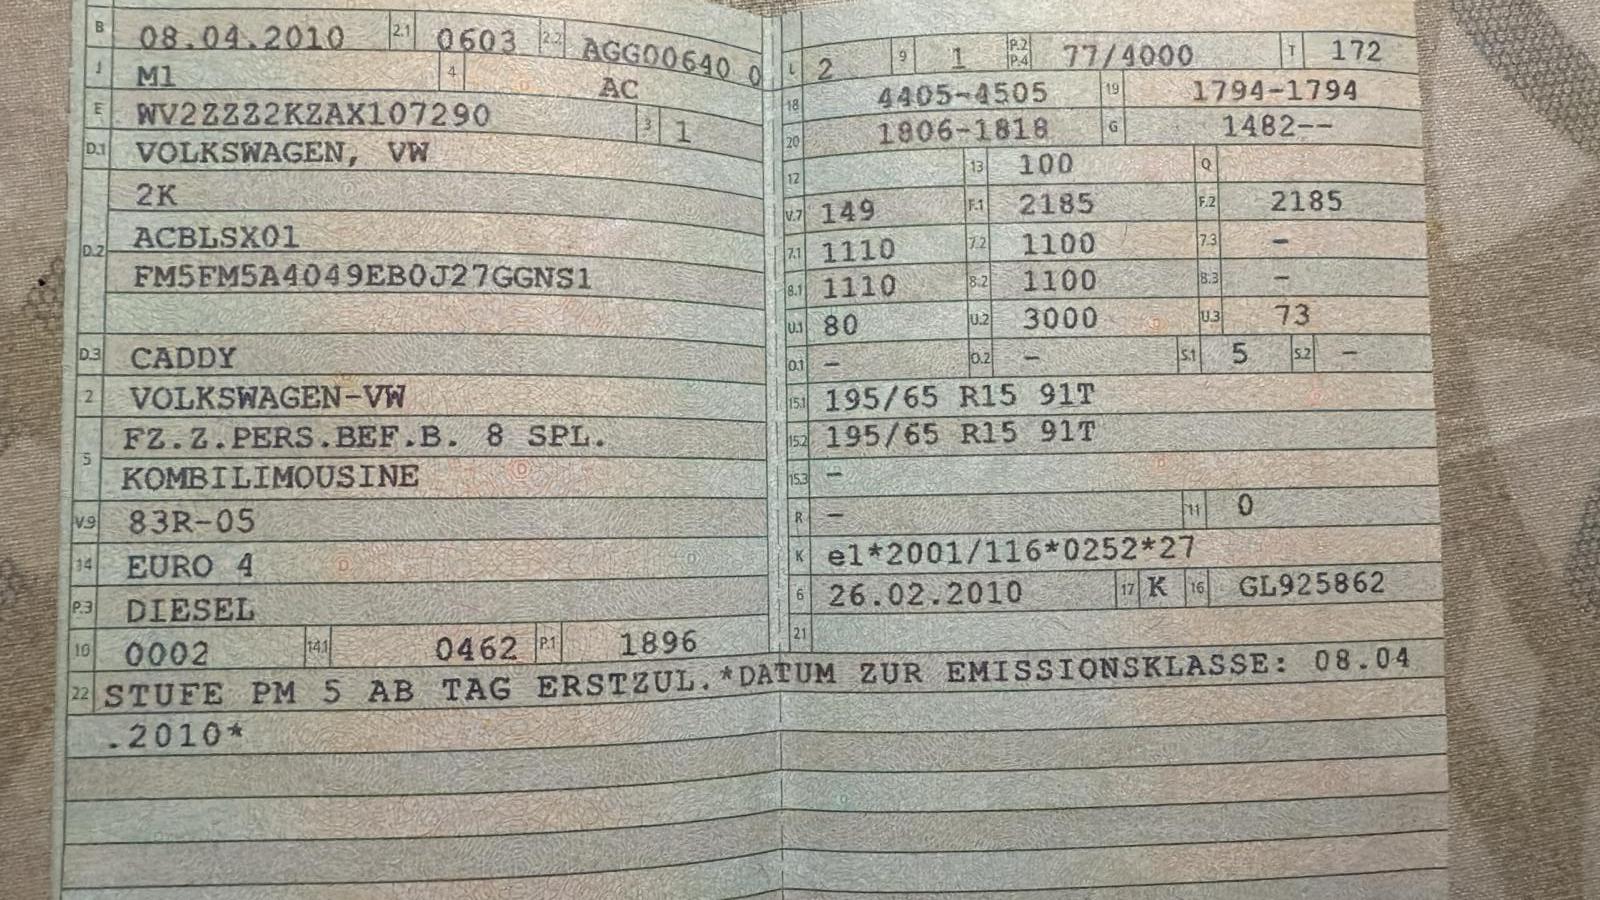 B 08.04.2010 2.1 0603 2.2 AGG00640 0
J M1 4 AC
E WV2ZZZ2KZAX107290 3 1
D.1 VOLKSWAGEN, VW
2K
D.2 ACBLSX01
FM5FM5A4049EB0J27GGNS1
D.3 CADDY
2 VOLKSWAGEN-VW
5 FZ.Z.PERS.BEF.B. 8 SPL.
KOMBILIMOUSINE
V.9 83R-05
14 EURO 4
P.3 DIESEL
10 0002 14.1 0462 P.1 1896
L 2 9 1 P.2 P.4 77/4000 T 172
18 4405-4505 19 1794-1794
20 1806-1818 G 1482--
12 13 100 Q
V.7 149 F.1 2185 F.2 2185
7.1 1110 7.2 1100 7.3 -
8.1 1110 8.2 1100 8.3 -
U.1 80 U.2 3000 U.3 73
O.1 - O.2 - S.1 5 S.2 -
15.1 195/65 R15 91T
15.2 195/65 R15 91T
15.3 -
R - 11 0
K e1*2001/116*0252*27
6 26.02.2010 17 K 16 GL925862
21
22 STUFE PM 5 AB TAG ERSTZUL.*DATUM ZUR EMISSIONSKLASSE: 08.04
.2010*